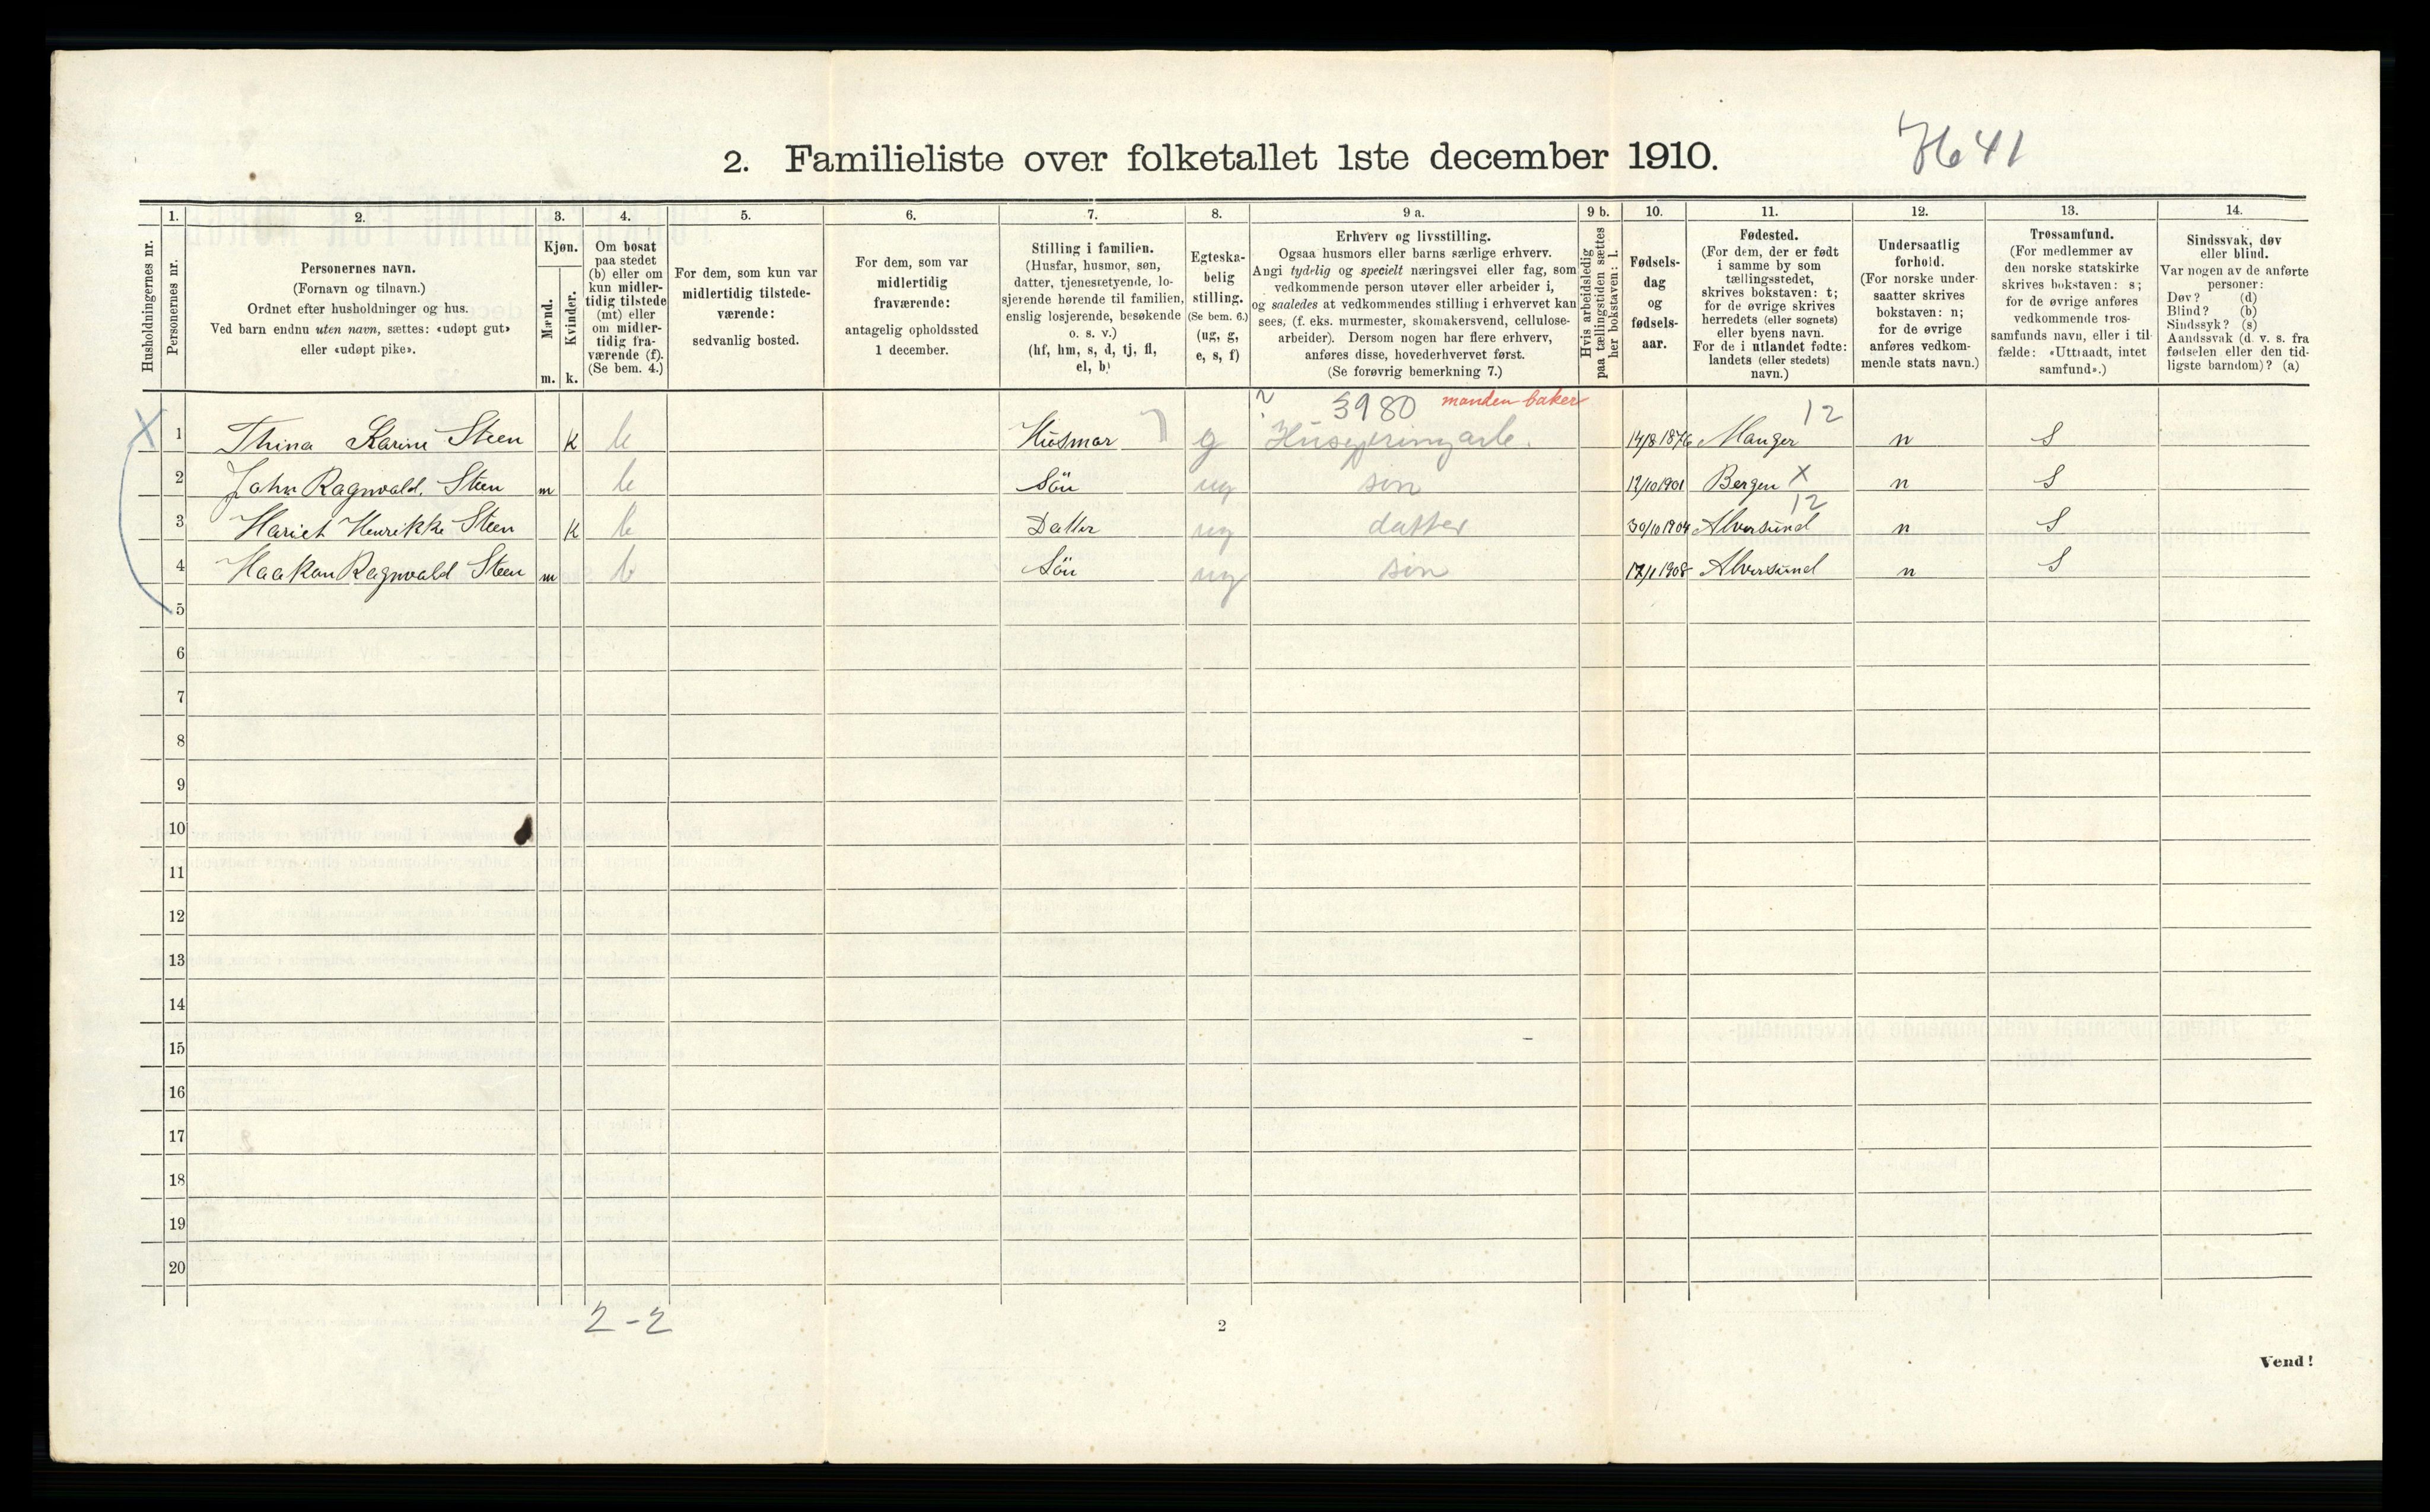 2. Familieliste over folketallet 1ste december 1910.
7641
Husholdningernes nr.
1. Personernes nr.
2. Personernes navn.
(Fornavn og tilnavn.)
Ordnet efter husholdninger og hus.
Ved barn endnu uten navn, sættes: «udøpt gut»
eller «udøpt pike».
3. Kjøn.
Mænd. m.
Kvinder. k.
4. Om bosat
paa stedet
(b) eller om
kun midler-
tidig tilstede
(mt) eller
om midler-
tidig fra-
værende (f).
(Se bem. 4.)
5. For dem, som kun var
midlertidig tilstede-
værende:
sedvanlig bosted.
6. For dem, som var
midlertidig
fraværende:
antagelig opholdssted
1 december.
7. Stilling i familien.
(Husfar, husmor, søn,
datter, tjenestetyende, lo-
sjerende hørende til familien,
enslig losjerende, besøkende
o. s. v.)
(hf, hm, s, d, tj, fl,
el, b)
8. Egteska-
belig
stilling.
(Se bem. 6.)
(ug, g,
e, s, f)
9 a. Erhverv og livsstilling.
Ogsaa husmors eller barns særlige erhverv.
Angi tydelig og specielt næringsvei eller fag, som
vedkommende person utøver eller arbeider i,
og saaledes at vedkommendes stilling i erhvervet kan
sees, (f. eks. murmester, skomakersvend, cellulose-
arbeider). Dersom nogen har flere erhverv,
anføres disse, hovederhvervet først.
(Se forøvrig bemerkning 7.)
9 b. Hvis arbeidsledig
paa tællingstiden sættes
her bokstaven: l.
10. Fødsels-
dag
og
fødsels-
aar.
11. Fødested.
(For dem, der er født
i samme by som
tællingsstedet,
skrives bokstaven: t;
for de øvrige skrives
herredets (eller sognets)
eller byens navn.
For de i utlandet fødte:
landets (eller stedets)
navn.)
12. Undersaatlig
forhold.
(For norske under-
saatter skrives
bokstaven: n;
for de øvrige
anføres vedkom-
mende stats navn.)
13. Trossamfund.
(For medlemmer av
den norske statskirke
skrives bokstaven: s;
for de øvrige anføres
vedkommende tros-
samfunds navn, eller i til-
fælde: «Uttraadt, intet
samfund».)
14. Sindssvak, døv
eller blind.
Var nogen av de anførte
personer:
Døv? (d)
Blind? (b)
Sindssyk? (s)
Aandssvak (d. v. s. fra
fødselen eller den tid-
ligste barndom)? (a)
? 3980 manden baker 12
X 1 Thina Karine Steen k b Husmor g 14/8 1876 Manger n S
2 John Ragnvald. Steen m b Sön ug søn 12/10 1901 Bergen X n S
12
3 Hariet Henrikke Steen k b Datter ug datter 30/10 1904 Alversund n S
4 Haakon Ragnvald Steen m b Sön ug søn 17/1 1908 Alversund n S
5
6
7
8
9
10
11
12
13
14
15
16
17
18
19
20
2-2
2
Vend!